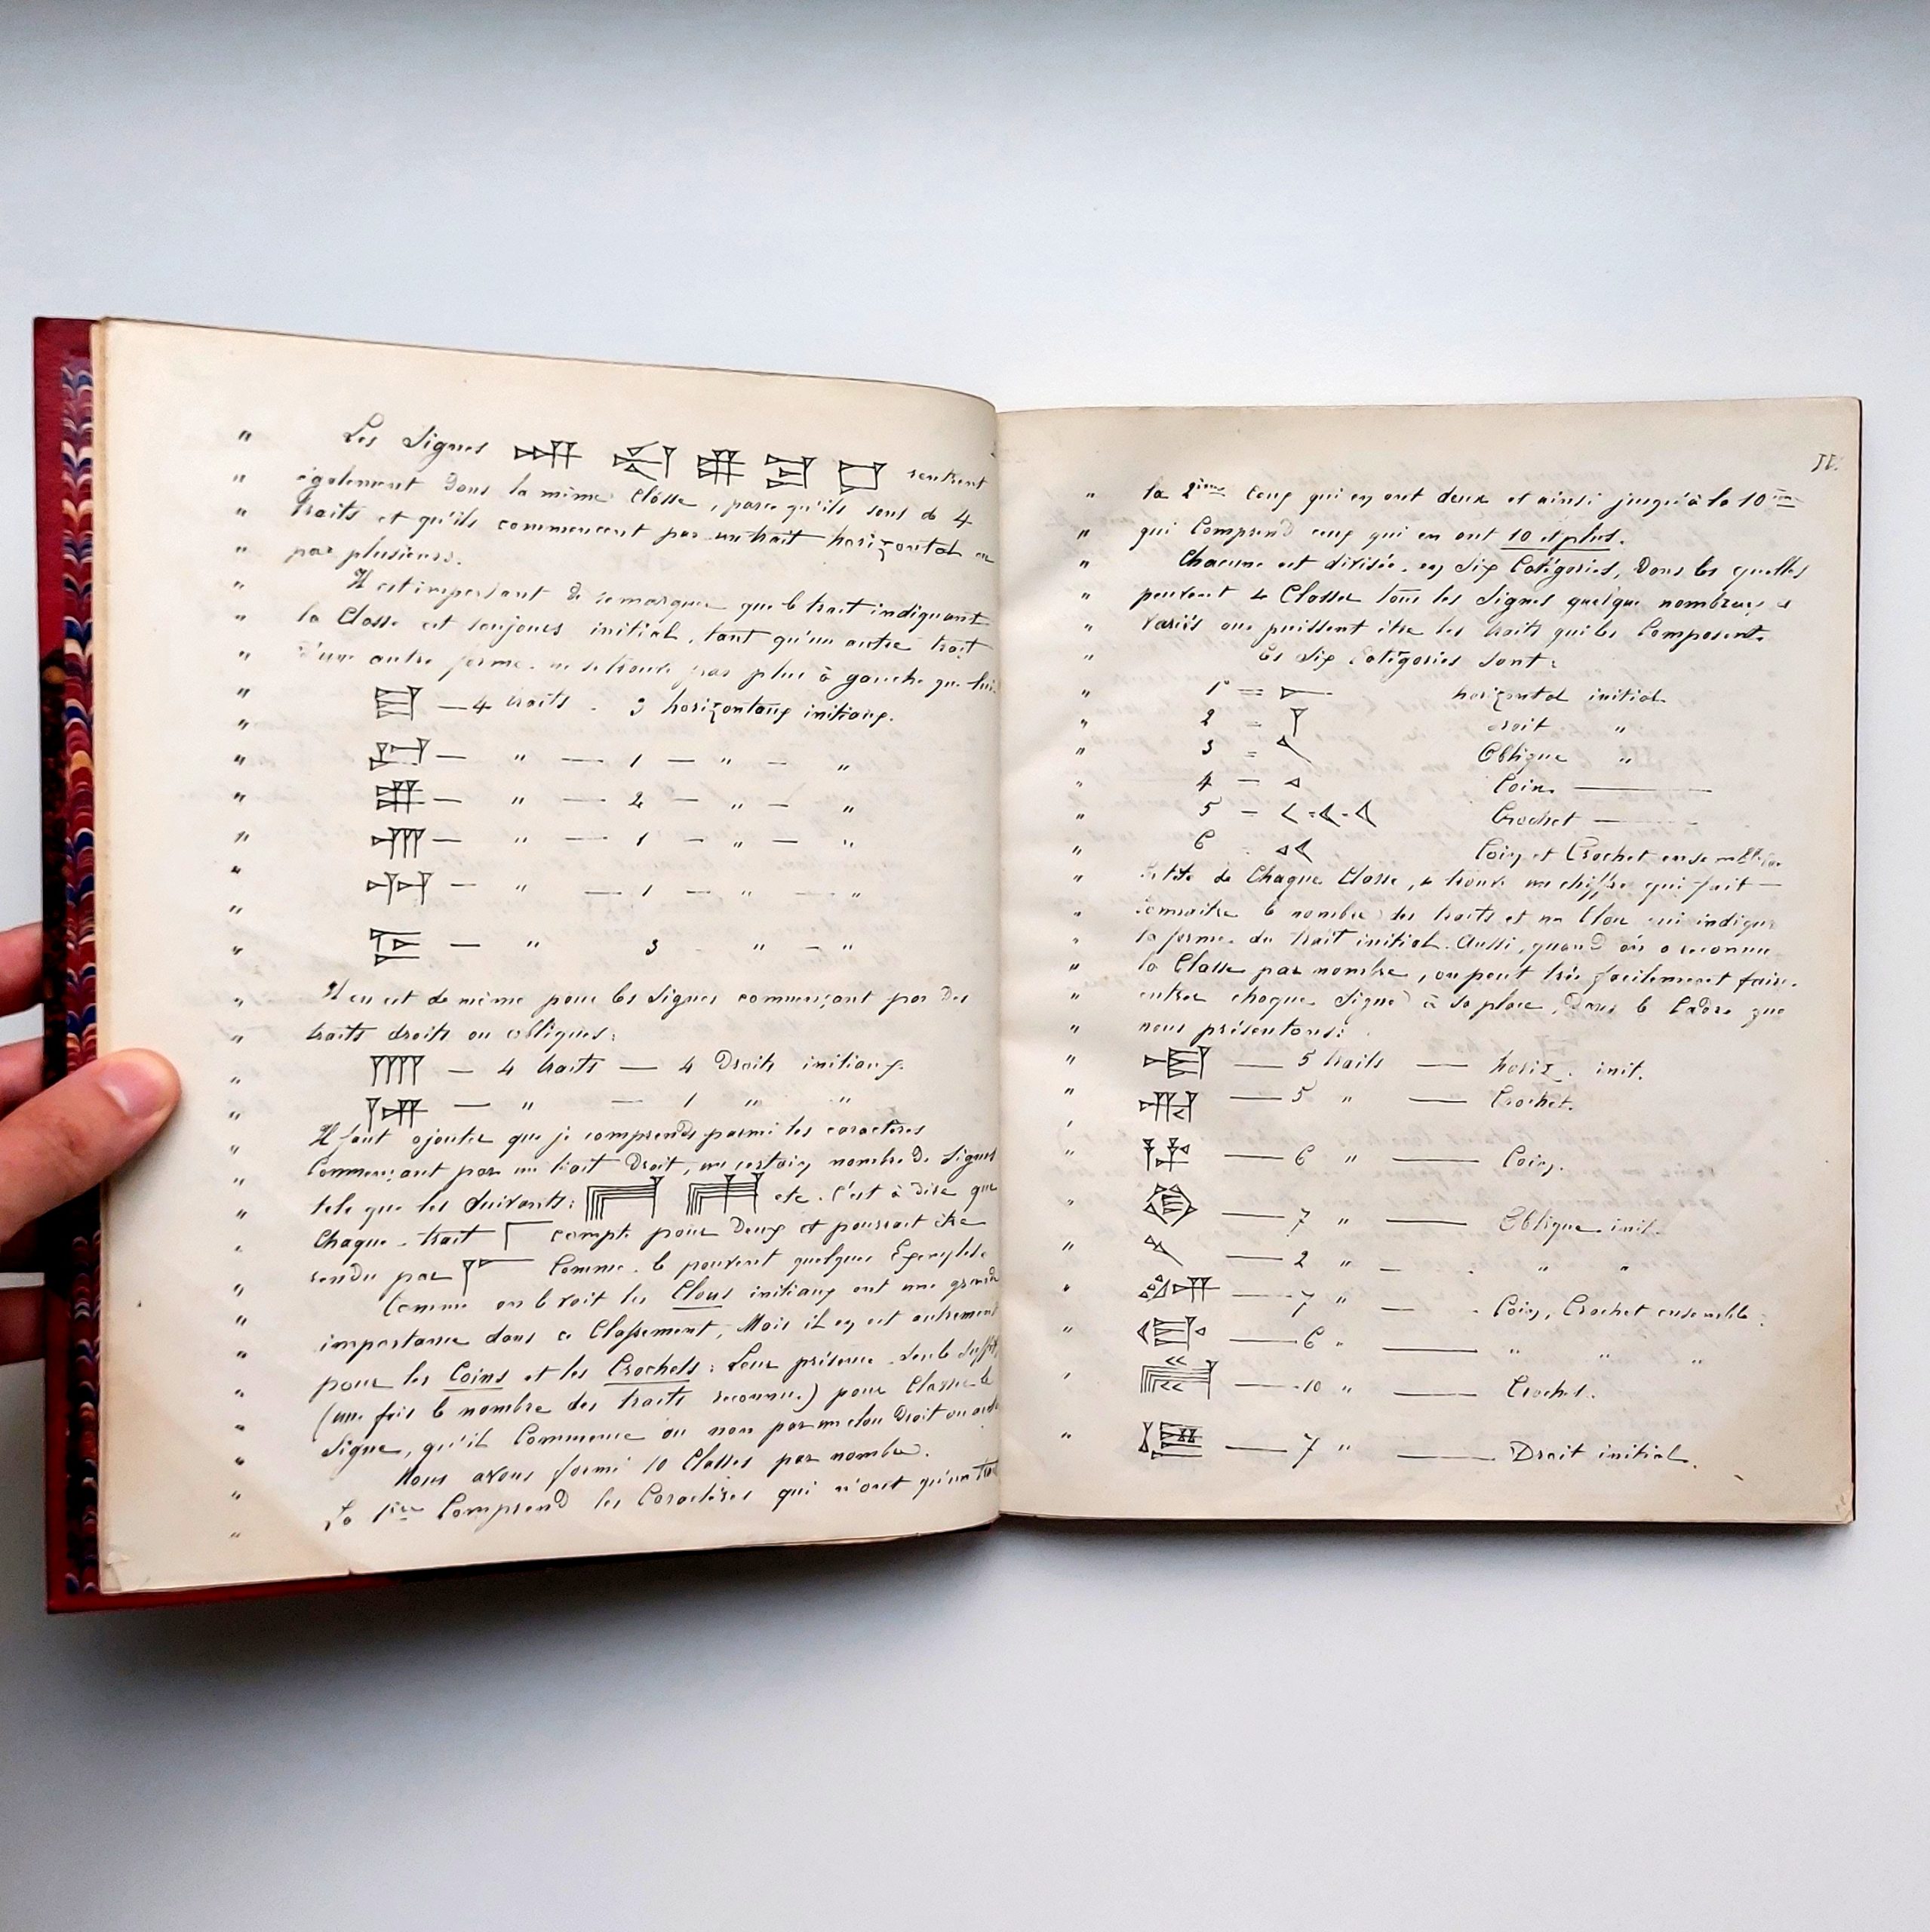 " Les Signes rentrent
" également dans la même Classe, parce qu'ils sont de 4
" traits et qu'ils commencent par un trait horizontal ou
" par plusieurs.
" Il est important de remarquer que le trait indiquant
" la Classe est toujours initial, tant qu'un autre trait
" d'une autre forme ne se trouve pas plus à gauche que lui.
" — 4 traits - 3 horizontaux initiaux.
" — " — 1 — " — "
" — " — 2 — " — "
" — " — 1 — " — "
" — " — 1 — " — "
" — " 3 - " — "
" Il en est de même pour les Signes commençant par des
" traits droits ou obliques:
" — 4 traits — 4 Droits initiaux.
" — " — 1 " "
" Il faut ajouter que je comprends parmi les caractères
" Commençant par un trait Droit, un certain nombre de Signes
" tels que les Suivants: etc. C'est à dire que
" Chaque trait compte pour Deux et pourrait être
" rendu par Comme le peuvent quelques Exemples.
" Comme on le voit les Clous initiaux ont une grande
" importance dans ce Classement, Mais il en est autrement
" pour les Coins et les Crochets: Leur présence seule suffit,
" (une fois le nombre des traits reconnu) pour Classer le
" Signe, qu'il Commence ou non par un clou Droit ou autre
" Nous avons formé 10 Classes par nombre.
" La 1ère Comprend les Caractères qui n'ont qu'un trait
IV.
" la 2ième Ceux qui en ont deux et ainsi jusqu'à la 10ième
" qui Comprend ceux qui en ont 10 et plus.
" Chacune est divisée en Six Catégories, Dans les quelles
" peuvent se Classer tous les Signes quelque nombreux et
" Variés que puissent être les traits qui les Composent.
" Ces Six Catégories Sont:
" 1° = horizontal initial
" 2 - droit "
" 3 = Oblique "
" 4 — Coin —
" 5 - Crochet —
" 6 Coin et Crochet ensemble
" tête de Chaque Classe, se trouve un chiffre qui fait —
" connaître le nombre des traits et un Clou qui indique
" la forme du trait initial. Aussi, quand on a reconnu
" la Classe par nombre, on peut très facilement faire
" entrer chaque Signe à sa place, Dans le Cadre que
" nous présentons:
" — 5 traits — horiz. init.
" — 5 " — Crochet.
" — 6 " — Coin.
" — 7 " — Oblique init.
" — 2 " — " "
" — 7 " — Coin, Crochet ensemble.
" — 6 " — " " "
" — 10 " — Crochet.
" — 7 " — Droit initial.